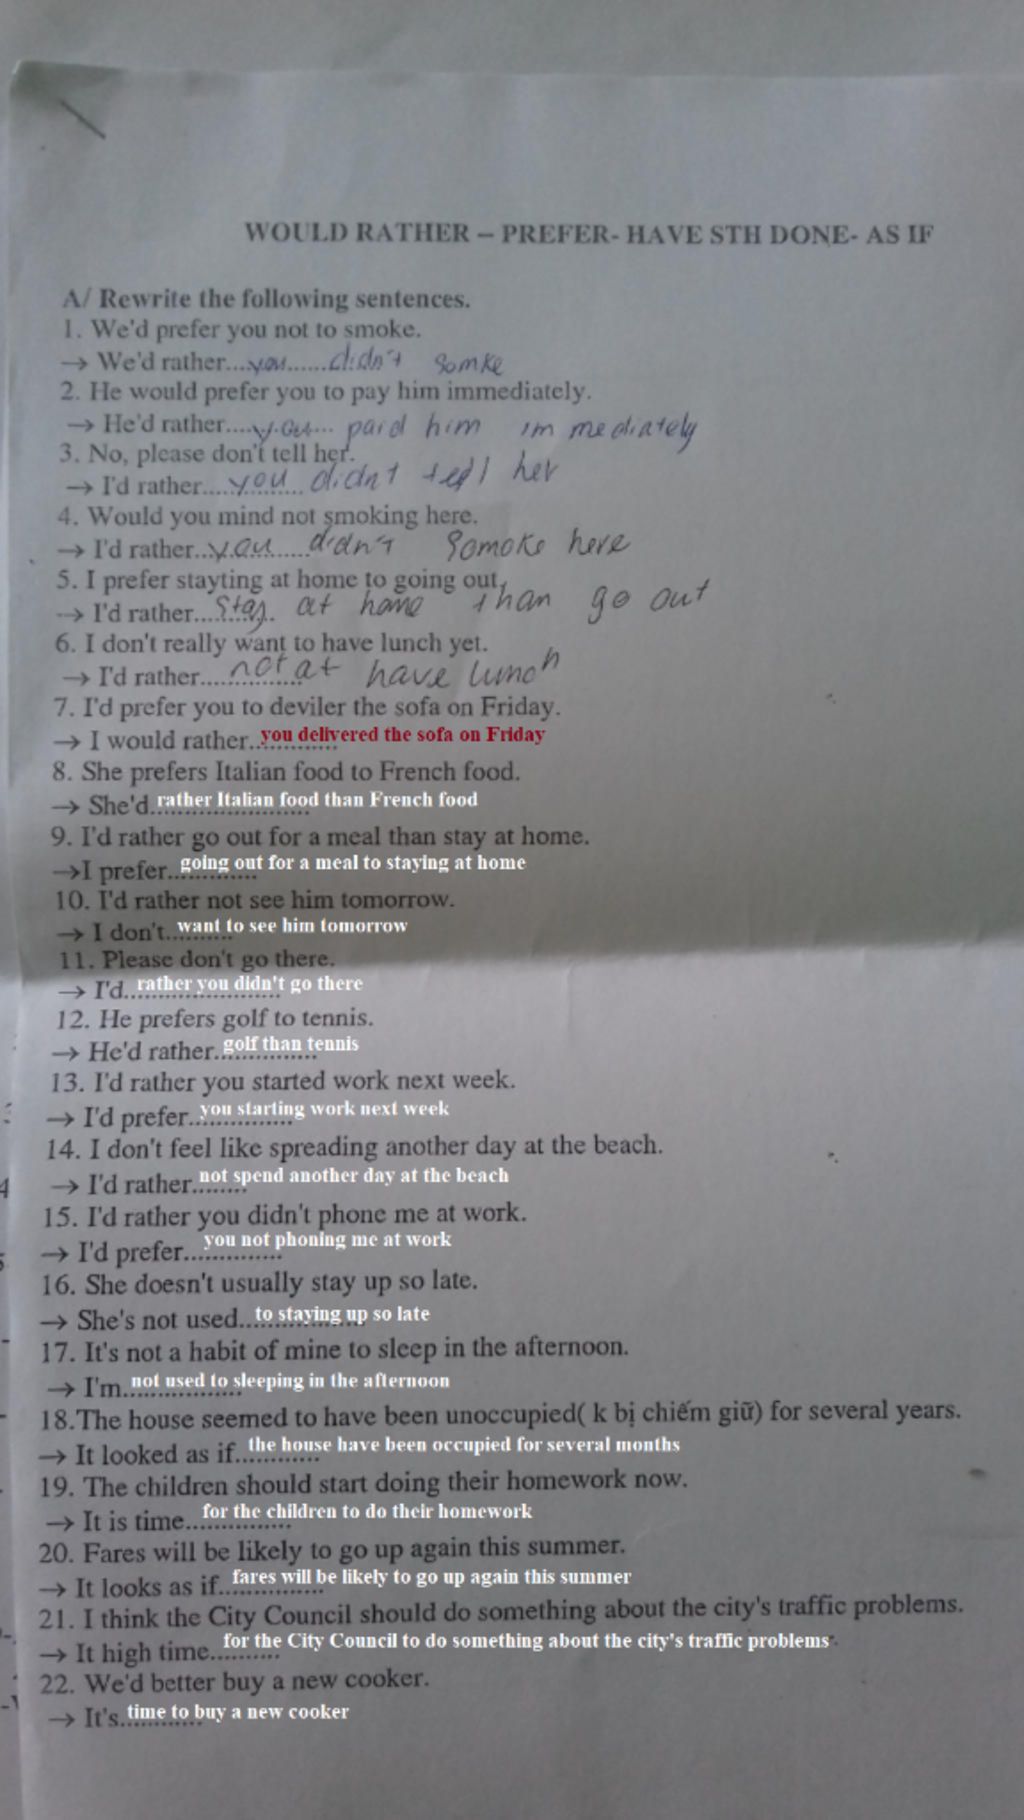 WOULD RATHER – PREFER- HAVE STH DONE- AS IF
A/ Rewrite the following sentences.
1. We'd prefer you not to smoke.
→ We'd rather....you......didn't somke
2. He would prefer you to pay him immediately.
→ He'd rather....you... paid him immediately
3. No, please don't tell her.
→ I'd rather....you... didn't tell her
4. Would you mind not smoking here.
→ I'd rather..you......didn't Somoke here
5. I prefer stayting at home to going out.
→ I'd rather...Stay at home than go out
6. I don't really want to have lunch yet.
→ I'd rather....not at have lunch
7. I'd prefer you to deviler the sofa on Friday.
→ I would rather..you delivered the sofa on Friday
8. She prefers Italian food to French food.
→ She'd.rather Italian food than French food
9. I'd rather go out for a meal than stay at home.
→I prefer..going out for a meal to staying at home
10. I'd rather not see him tomorrow.
→ I don't..want to see him tomorrow
11. Please don't go there.
→ I'd..rather you didn't go there
12. He prefers golf to tennis.
→ He'd rather.golf than tennis
13. I'd rather you started work next week.
→ I'd prefer..you starting work next week
14. I don't feel like spreading another day at the beach.
→ I'd rather.not spend another day at the beach
15. I'd rather you didn't phone me at work.
→ I'd prefer...you not phoning me at work
16. She doesn't usually stay up so late.
→ She's not used..to staying up so late
17. It's not a habit of mine to sleep in the afternoon.
→ I'm.not used to sleeping in the afternoon
18.The house seemed to have been unoccupied( k bị chiếm giữ) for several years.
→ It looked as if..the house have been occupied for several months
19. The children should start doing their homework now.
→ It is time...for the children to do their homework
20. Fares will be likely to go up again this summer.
→ It looks as if..fares will be likely to go up again this summer
21. I think the City Council should do something about the city's traffic problems.
→ It high time..for the City Council to do something about the city's traffic problems
22. We'd better buy a new cooker.
→ It's.time to buy a new cooker